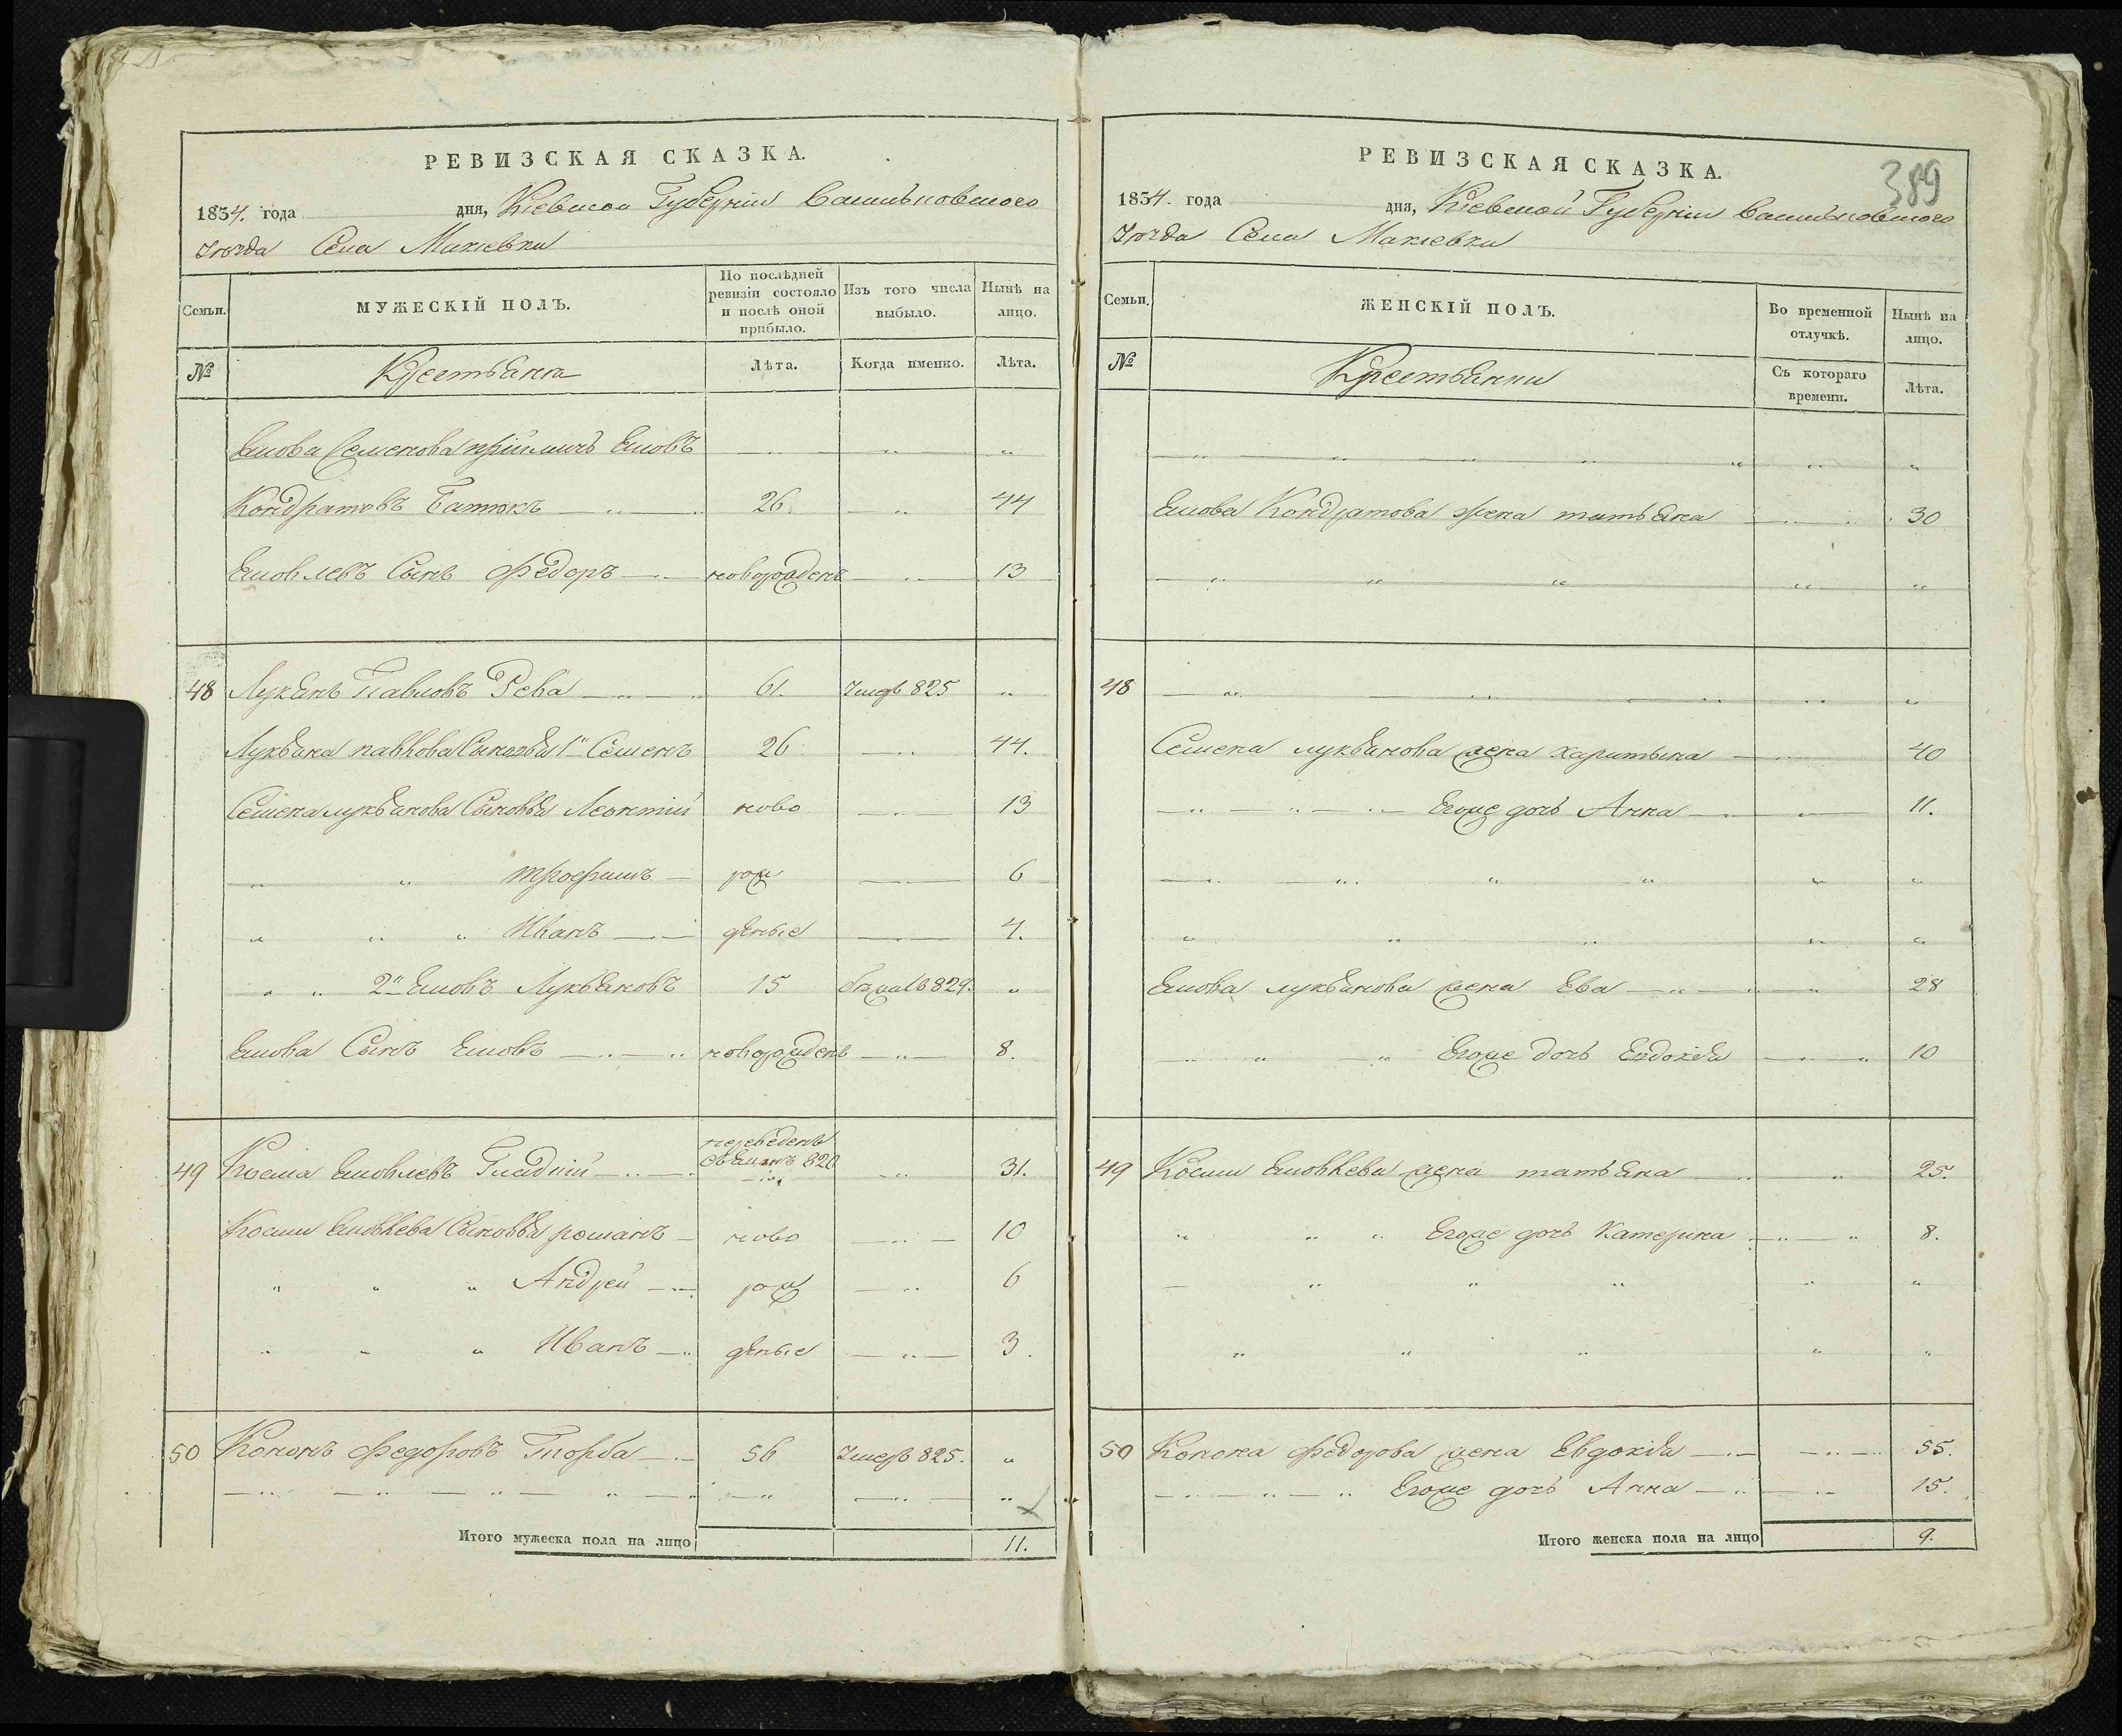 РЕВИЗСКАЯ СКАЗКА.
1834. года дня, Кіевской Губерніи Васильковского
Уезда Села Макіевки
Семьи.
МУЖЕСКІЙ ПОЛЪ.
По послѣдней ревизіи состояло и послѣ оной прибыло.
Изъ того числа выбыло.
Нынѣ на лицо.
№
Крестьяне
Лѣта.
Когда именно.
Лѣта.
Якова Семенова Яковъ
Кондратовъ 26 44
Яковлевъ Сынъ Федоръ новорожденъ 13
48 Лукянъ Павловъ Рева 61. 825
Лукьяна павлова Сыновья 1й Семенъ 26 44.
Семена лукьянова Сыновья Леонтій ново 13
трофимъ рож 6
Иванъ деные 4.
2й Яковъ Лукьяновъ 15 829.
Якова Сынъ Яковъ новорожденъ 8.
49 Косма Яковлевъ Гладкій переведенъ 820 31.
Космы Яковлева Сыновья романъ ново 10
Андрей рож 6
Иванъ деные 3.
50 Кононъ Федоровъ Торба 56 Умеръ 825.
Итого мужеска пола на лицо 11.
РЕВИЗСКАЯ СКАЗКА.
389
1834. года дня, Кіевской Губерніи Васильковского
Уезда Села Макіевки
Семьи.
ЖЕНСКІЙ ПОЛЪ.
Во временной отлучкѣ.
Нынѣ на лицо.
№
Крестьянки
Съ котораго времени.
Лѣта.
Якова Кондратова жена татьяна 30
48
Семена лукьянова жена харитына 40
Егоже дочь Анна 11.
Якова лукьянова жена Ева 28
Егоже дочь Евдокія 10
49 Космы Яковлева жена татьяна 25.
Егоже дочь Катерина 8.
50 Конона Федорова жена Евдокія 55.
Егоже дочь Анна 15.
Итого женска пола на лицо 9.